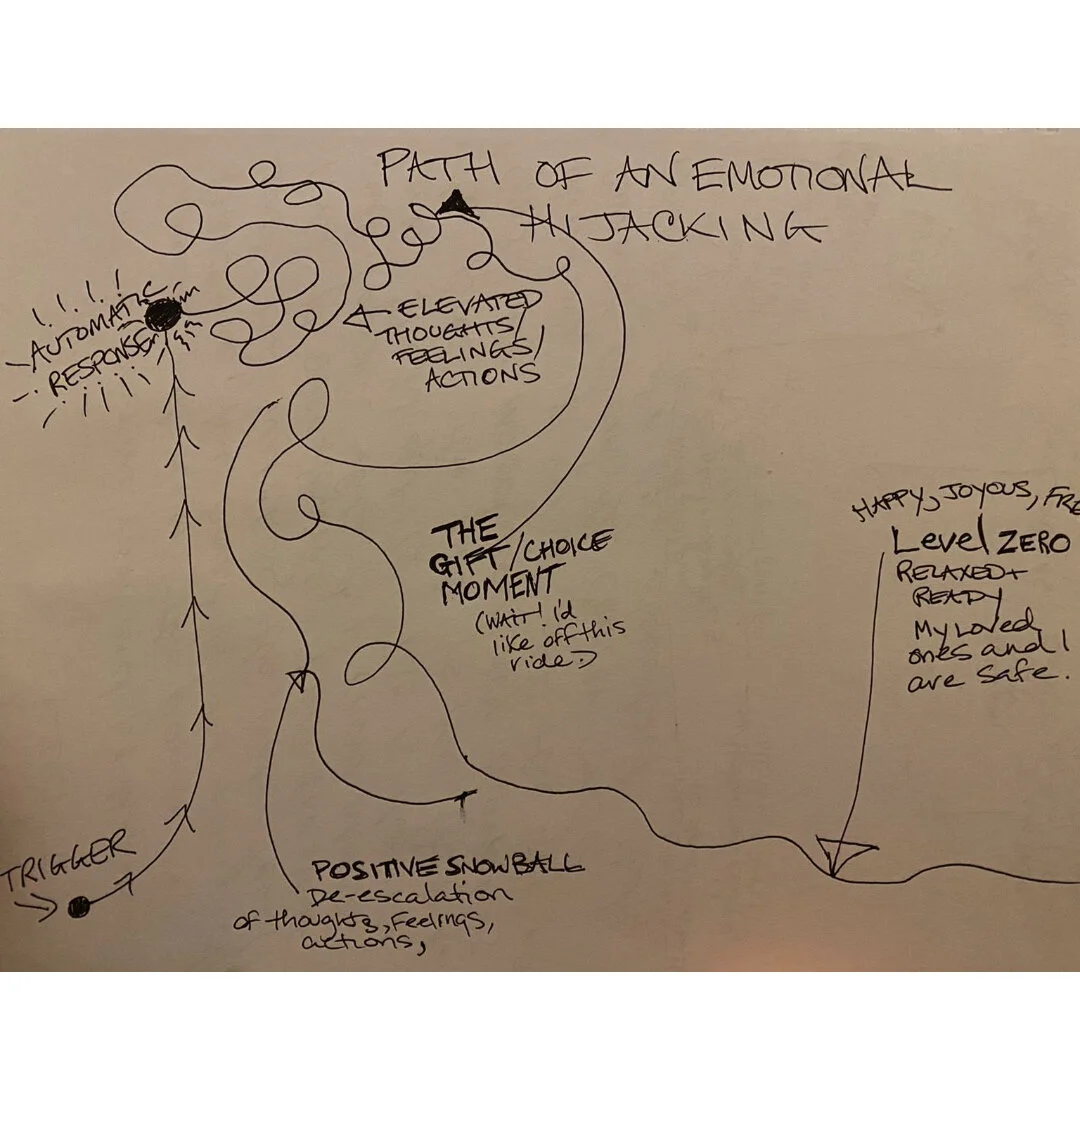 PATH OF AN EMOTIONAL
HIJACKING
AUTOMATIC
RESPONSE
ELEVATED
THOUGHTS/
FEELINGS/
ACTIONS
THE
GIFT/CHOICE
MOMENT
(WAIT! I'd
like off this
ride.)
HAPPY, JOYOUS, FRE
Level ZERO
RELAXED+
READY
My Loved
ones and I
are safe.
TRIGGER
POSITIVE SNOWBALL
De-escalation
of thoughts, Feelings,
actions,